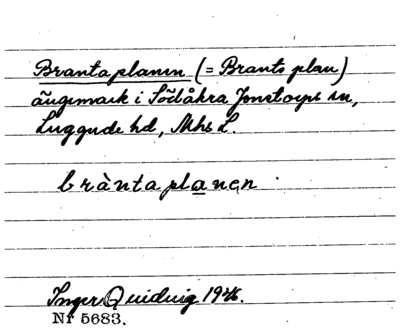 Brantaplanen (= Brants plan)
ängsmark i Södåkra Jonstorps sn,
Luggude hd, Mhs L.
bràntaplanen
Inger Quiding 1946.
Nr 5683.